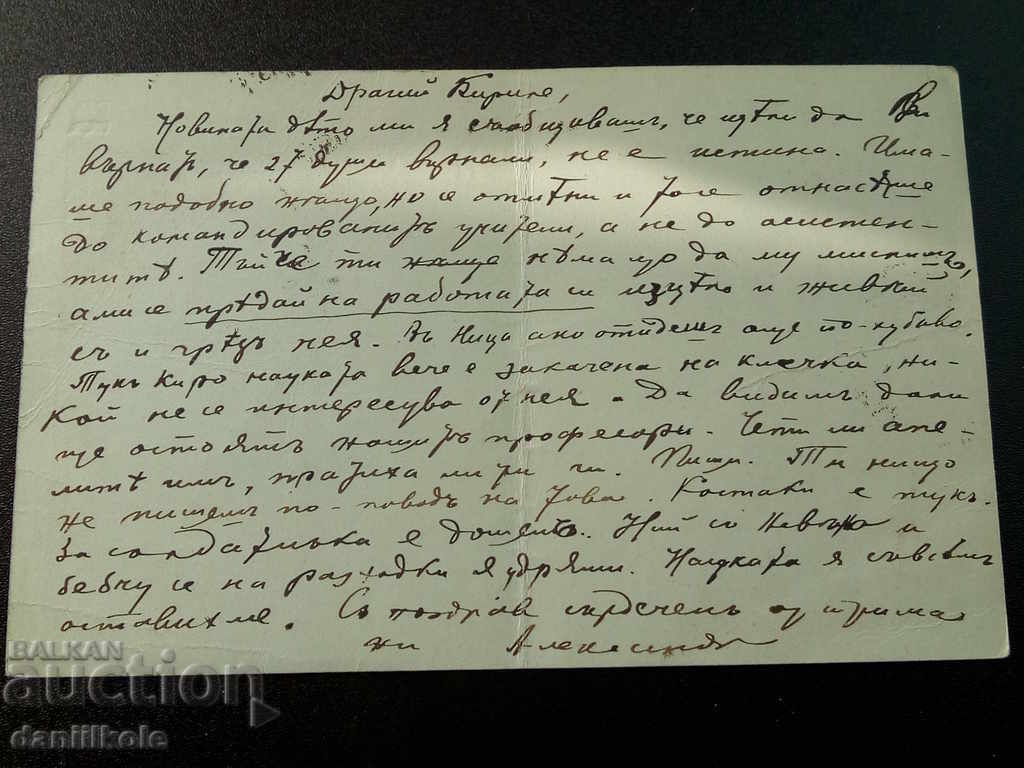 Драгий Кириле,
Новината дѣто ми я съобщавашъ, че щѣли да Ви
върнатъ, че 27 души върнали, не е истина. Има-
ше подобно нѣщо, но се отмѣни и то се отнасѣше
до командированитѣ учители, а не до асистен-
титѣ. Тъй че ти нѣма що да му мислишъ,
ами се прѣдай на работата си изцѣло и живѣй
съ и чрѣзъ нея. Въ Ница ако отидешъ още по-хубаво.
Тукъ Киро науката вече е закачена на клечка, ни-
кой не се интересува отъ нея. Да видимъ дали
ще остоятъ нашитѣ професори. Чети ли апе-
литѣ имъ, пратиха ли ти ги. Пиши. Ти нищо
не пишешъ по-поводъ на това. Костаки е тукъ.
За солдатлъка е дошелъ. Ний со и
на разходки я ударяме. Науката я съвсѣмъ
оставихме. Съ поздрав сърдеченъ отъ трима
ни Александъ
BALKAN
auction
daniilkole